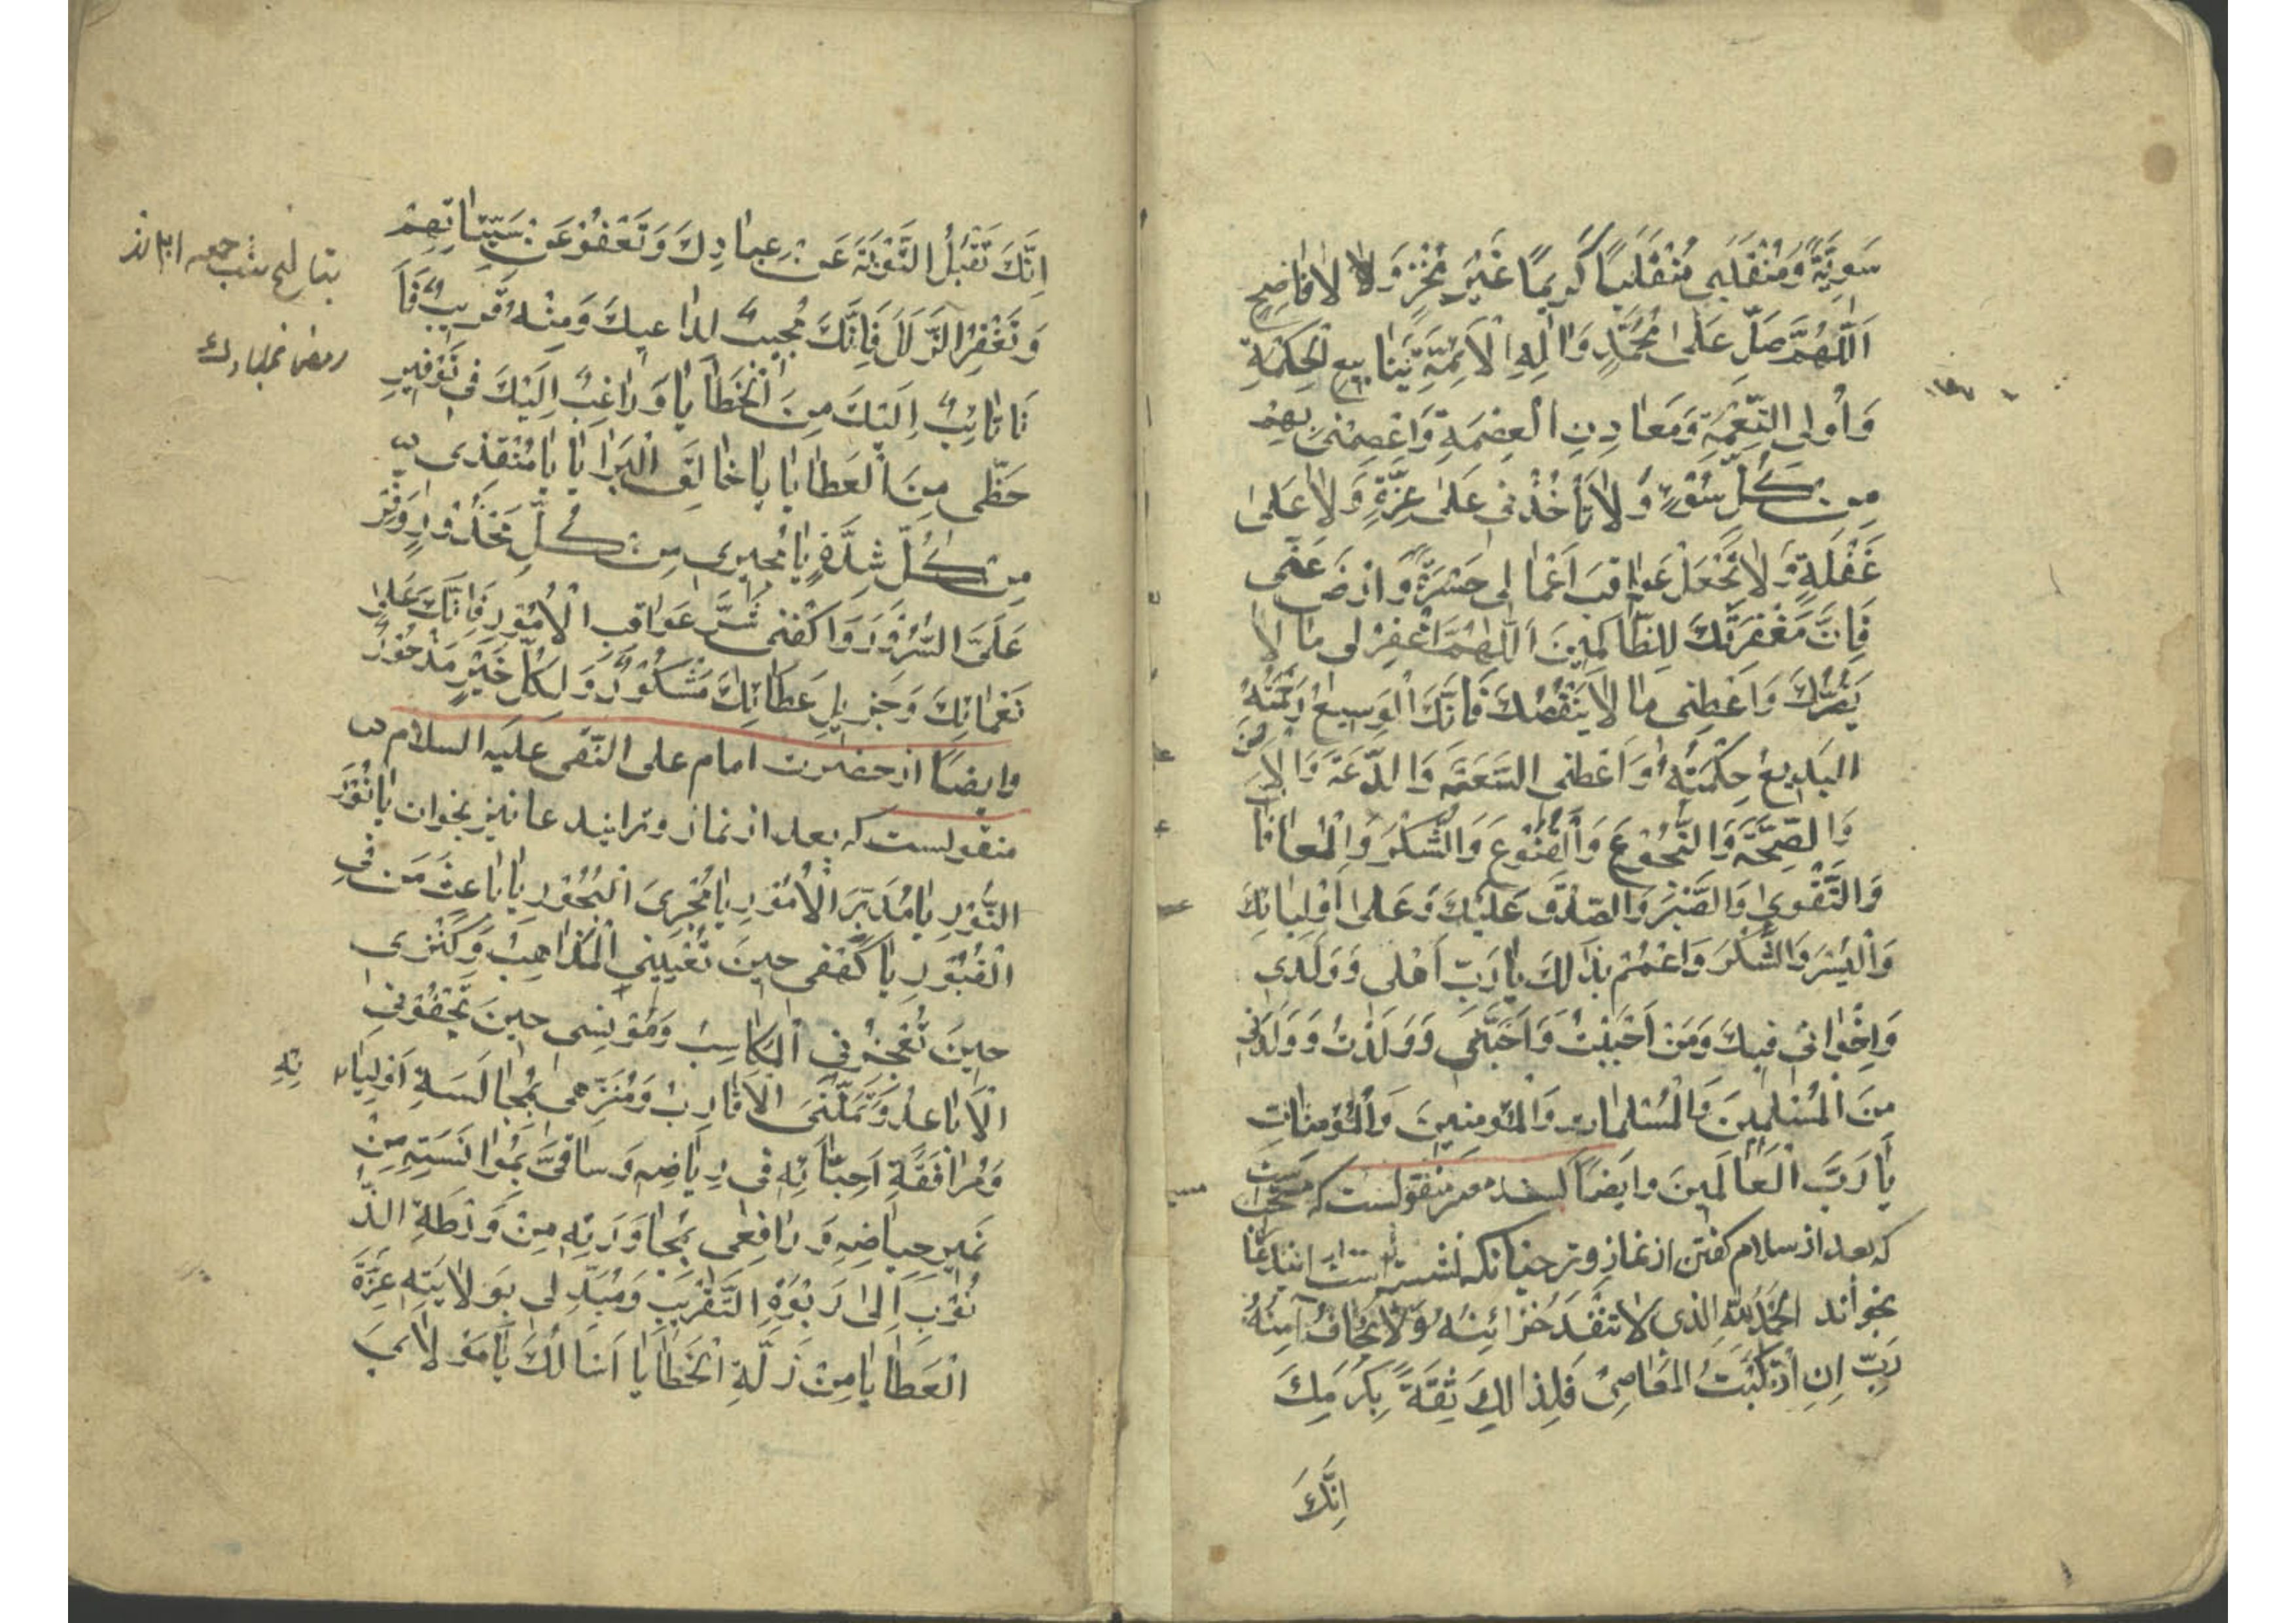 سَوِيَّةً وَمُنْقَلَبِی مُنْقَلَباً کَرِیمًا غَیْرَ مُخْزٍ وَلا لا فَاضِحٍ
اَللّٰهُمَّ صَلِّ عَلٰی مُحَمَّدٍ وَاٰلِهِ الْاَئِمَّةِ یَنَابِیعِ الْحِکْمَةِ
وَاُولِی النِّعْمَةِ وَمَعَادِنِ الْعِصْمَةِ وَاعْصِمْنِی بِهِمْ
مِنْ کُلِّ سُوْءٍ وَلَا تَأْخُذْنِی عَلٰی غِرَّةٍ وَلَا عَلٰی
غَفْلَةٍ وَلَا تَجْعَلْ عَوَاقِبَ اَعْمَالِی حَسْرَةً وَارْضَ عَنِّی
فَاِنَّ مَغْفِرَتَكَ لِلظَّالِمِینَ اَللّٰهُمَّ اغْفِرْ لِی مَا لَا
یَضُرُّكَ وَاَعْطِنِی مَا لَا یَنْقُصُكَ فَاِنَّكَ الْوَسِیعُ رَحْمَتُهُ
الْبَدِیعُ حِکْمَتُهُ وَاَعْطِنِی السَّعَةَ وَالدَّعَةَ وَالْاَمْنَ
وَالصِّحَّةَ وَالنُّجُوعَ وَالْقُنُوعَ وَالشُّکْرَ وَالْمُعَافَاةَ
وَالتَّقْوٰی وَالصَّبْرَ وَالصِّدْقَ عَلَیْكَ وَعَلٰی اَوْلِیَائِكَ
وَالْیُسْرَ وَالشُّکْرَ وَاعْمُمْ بِذٰلِكَ یَا رَبِّ اَهْلِی وَوَلَدِی
وَاِخْوَانِی فِیكَ وَمَنْ اَحْبَبْتُ وَاَحَبَّنِی وَوَلَدْتُ وَوَلَدَنِی
مِنَ الْمُسْلِمِینَ وَالْمُسْلِمَاتِ وَالْمُؤْمِنِینَ وَالْمُؤْمِنَاتِ
یَا رَبَّ الْعَالَمِینَ وایضاً بسند معتبر منقولست که مستحب است
که بعد از سلام گفتن از نماز وتر چنانکه نشسته است این دعا
بخواند الْحَمْدُ لِلّٰهِ الَّذِی لَا تَنْفَدُ خَزَائِنُهُ وَلَا یَخَافُ آمِنُهُ
رَبِّ اِنِ ارْتَکَبْتُ الْمَعَاصِیَ فَلِذٰلِكَ ثِقَةً بِکَرَمِكَ
اِنَّكَ
اِنَّكَ تَقْبَلُ التَّوْبَةَ عَنْ عِبَادِكَ وَتَعْفُوْ عَنْ سَیِّئَاتِهِمْ
وَتَغْفِرُ الزَّلَلَ فَاِنَّكَ مُجِیبٌ لِدَاعِیكَ وَمِنْهُ قَرِیبٌ فَاَ
نَا تَائِبٌ اِلَیْكَ مِنَ الْخَطَایَا وَرَاغِبٌ اِلَیْكَ فِی تَوْفِیرِ
حَظِّی مِنَ الْعَطَایَا یَا خَالِقَ الْبَرَایَا یَا مُنْقِذِی
مِنْ کُلِّ شِدَّةٍ یَا مُجِیرِی مِنْ کُلِّ مَحْذُورٍ وَفِّرْ
عَلَیَّ السُّرُورَ وَاکْفِنِی شَرَّ عَوَاقِبِ الْاُمُورِ فَاِنَّكَ عَلٰی
نَعْمَائِكَ وَجَزِیلِ عَطَائِكَ مَشْکُورٌ وَلِکُلِّ خَیْرٍ مَذْخُورٌ
وایضاً از حضرت امام علی النّقی علیه السلام
منقولست که بعد از نماز وتر ایندعا نیز بخوان یَا نُورَ
النُّورِ یَا مُدَبِّرَ الْاُمُورِ یَا مُجْرِیَ الْبُحُورِ یَا بَاعِثَ مَنْ فِی
الْقُبُورِ یَا کَهْفِی حِینَ تُعْیِینِی الْمَذَاهِبُ وَکَنْزِی
حِینَ تُعْجِزُنِی الْمَکَاسِبُ وَمُوْنِسِی حِینَ تَجْفُوْنِی
الْاَبَاعِدُ وَتَمَلُّنِی الْاَقَارِبُ وَمُنَزِّهِی بِمُجَالَسَةِ اَوْلِیَائِهِ
وَمُرَافَقَةِ اَحِبَّائِهِ فِی رِیَاضِهِ وَسَاقِیَّ بِمُوَانَسَتِهِ مِنْ
نَمِیرِ حِیَاضِهِ وَرَافِعِی بِمُجَاوَرَتِهِ مِنْ وَرْطَةِ الذُّ
نُوْبِ اِلٰی رَبْوَةِ التَّقْرِیبِ وَمُبَدِّلِی بِوَلَایَتِهِ عِزَّةَ
الْعَطَایَا مِنْ زِلَّةِ الْخَطَایَا اَسْاَلُكَ یَا مَوْلَایَ
بتاریخ شب جمعه
رمضان المبارك